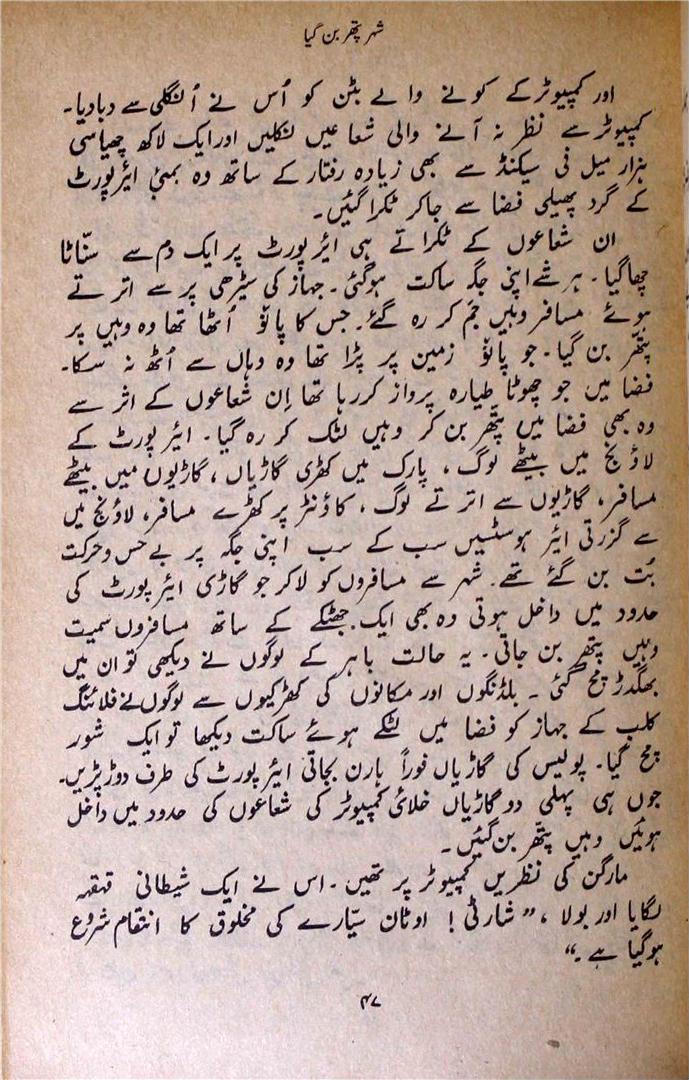 شہر پتھر بن گیا
اور کمپیوٹر کے کونے والے بٹن کو اُس نے اُنگلی سے دبا دیا۔
کمپیوٹر سے نظر نہ آنے والی شعاعیں نکلیں اور ایک لاکھ چھیاسی
ہزار میل فی سیکنڈ سے بھی زیادہ رفتار کے ساتھ وہ بمبئی ائیرپورٹ
کے گرد پھیلی فضا سے جا کر ٹکرا گئیں۔
ان شعاعوں کے ٹکراتے ہی ائیرپورٹ پر ایک دم سے سنّاٹا
چھا گیا۔ ہر شے اپنی جگہ ساکت ہوگئی۔ جہاز کی سیڑھی پر سے اترتے
ہوئے مسافر وہیں جم کر رہ گئے۔ جس کا پاؤں اُٹھا تھا وہ وہیں پر
پتھّر بن گیا۔ جو پاؤں زمین پر پڑا تھا وہ وہاں سے اُٹھ نہ سکا۔
فضا میں جو چھوٹا طیارہ پرواز کر رہا تھا اِن شعاعوں کے اثر سے
وہ بھی فضا میں پتھّر بن کر وہیں لٹک کر رہ گیا۔ ائیرپورٹ کے
لاؤنج میں بیٹھے لوگ، پارک میں کھڑی گاڑیاں، گاڑیوں میں بیٹھے
مسافر، گاڑیوں سے اترتے لوگ، کاؤنٹر پر کھڑے مسافر، لاؤنج میں
سے گزرتی ائیر ہوسٹسیں سب کے سب اپنی جگہ پر بے حس و حرکت
بُت بن گئے تھے۔ شہر سے مسافروں کو لاکر جو گاڑی ائیرپورٹ کی
حدود میں داخل ہوتی وہ بھی ایک جھٹکے کے ساتھ مسافروں سمیت
وہیں پتھر بن جاتی۔ یہ حالت باہر کے لوگوں نے دیکھی تو ان میں
بھگدڑ مچ گئی۔ بلڈنگوں اور مکانوں کی کھڑکیوں سے لوگوں نے فلائنگ
کلب کے جہاز کو فضا میں لٹکے ہوئے ساکت دیکھا تو ایک شور
مچ گیا۔ پولیس کی گاڑیاں فوراً ہارن بجاتی ائیرپورٹ کی طرف دوڑ پڑیں۔
جوں ہی پہلی دو گاڑیاں خلائی کمپیوٹر کی شعاعوں کی حدود میں داخل
ہوئیں وہیں پتھّر بن گئیں۔
مارگن کی نظریں کمپیوٹر پر تھیں۔ اس نے ایک شیطانی قہقہہ
لگایا اور بولا، ”شارٹی! اوٹان سیّارے کی مخلوق کا انتقام شروع
ہوگیا ہے۔“
۴۷